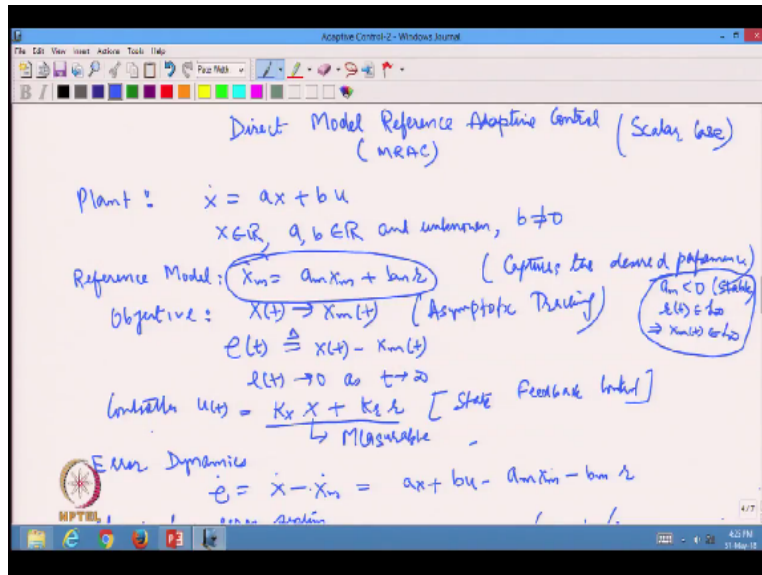 Adaptive Control-2 - Windows Journal
File Edit View Insert Actions Tools Help
Page Width
B I
Direct Model Reference Adaptive Control (Scalar Case)
(MRAC)
Plant: ẋ = ax + bu
x∈ℝ, a, b ∈ℝ and unknown, b≠0
Reference Model: ẋm = am xm + bm r (Captures the desired performance)
am < 0 (stable)
Objective: x(t) → xm(t) (Asymptotic Tracking)
r(t) ∈ L∞
⇒ xm(t) ∈ L∞
e(t) ≜ x(t) - xm(t)
e(t) → 0 as t → ∞
Controller u(t) = Kx x + Kr r [State Feedback Control]
↳ Measurable
Error Dynamics
ė = ẋ - ẋm = ax + bu - am xm - bm r
NPTEL
4/7
4:25 PM
31-May-18